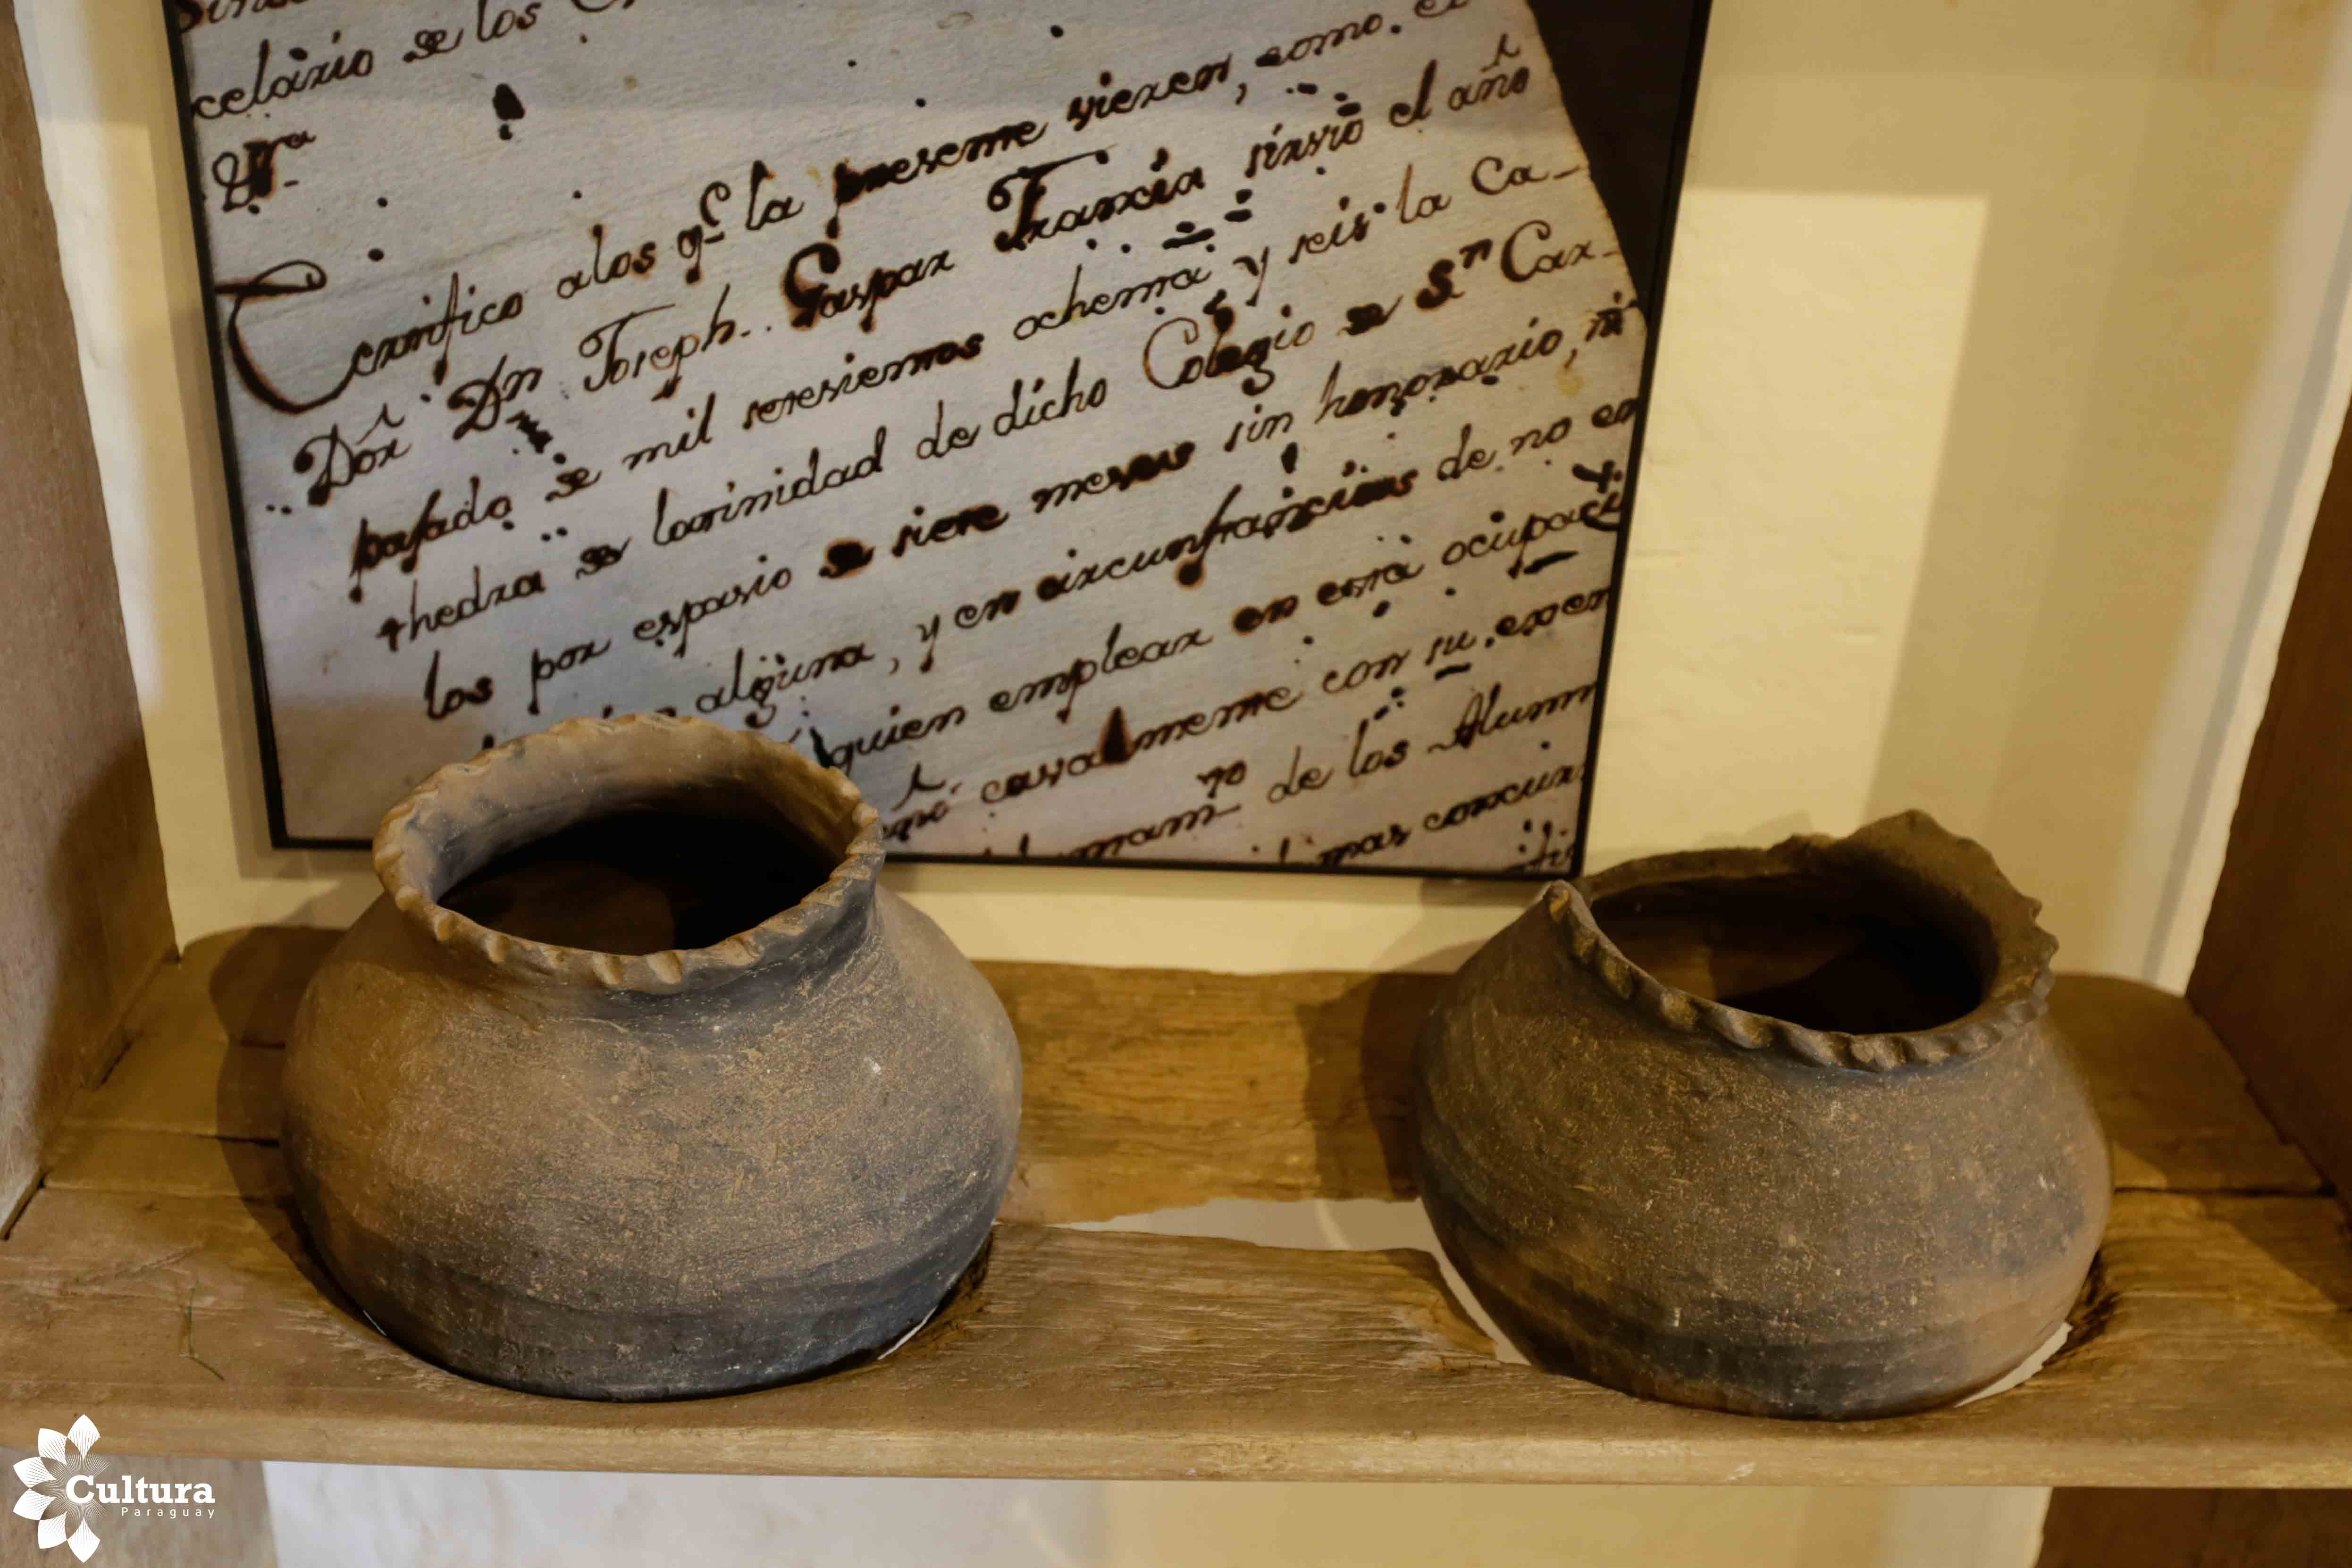 celàrio de los
Vra
Certifico alos qe la presente vieren, como. el
Dor Dn Joseph.. Gaspar Francia sirvió el año
pasado de mil setesientos ochenta y seis la Ca-
thedra de latinidad de dicho Colegio de Sn Car-
los por espasio de siete meses sin honorario, ni
alguna, y en circunstancias de no en
quien emplear en esta ocupac
con su exaen
de los Alumn
concur
Cultura
Paraguay